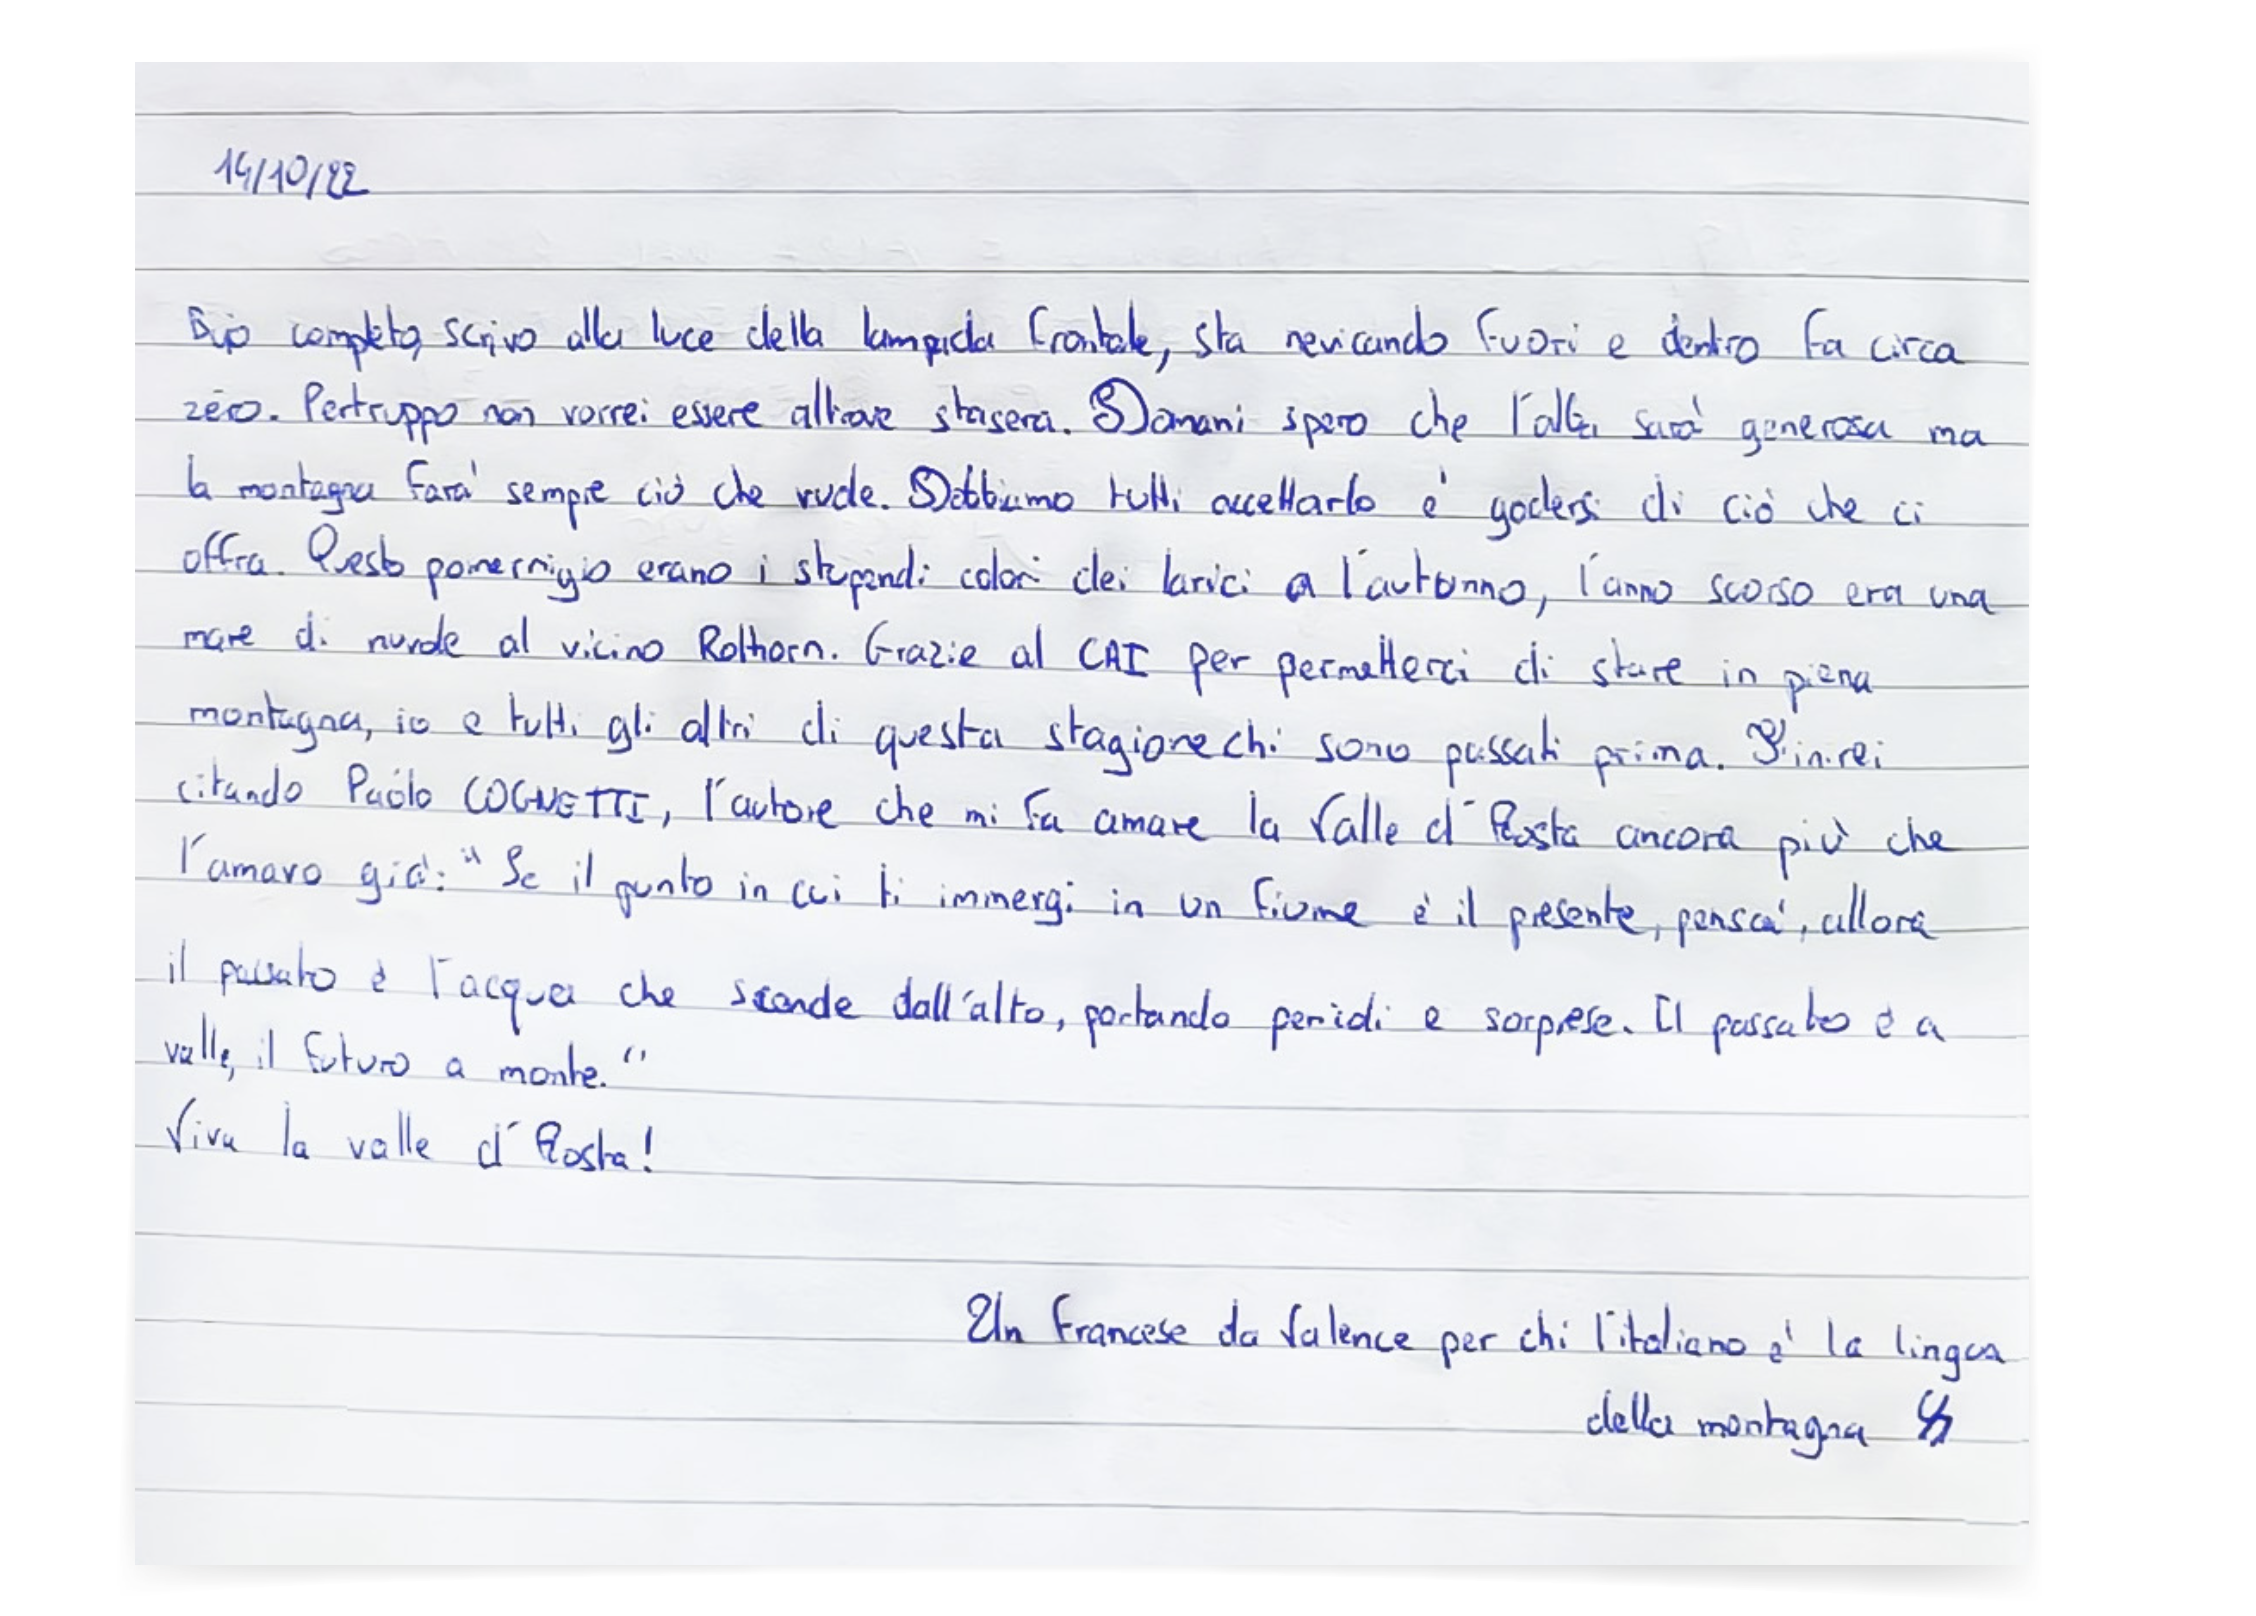 14/10/22
Buio completo, scrivo alla luce della lampada frontale, sta nevicando fuori e dentro fa circa
zero. Pertruppo non vorrei essere altrove stasera. Domani spero che l'alba sarà generosa ma
la montagna farà sempre ciò che vuole. Dobbiamo tutti accettarlo e godersi di ciò che ci
offra. Questo pomerrigio erano i stupendi colori dei larici a l'autonno, l'anno scorso era una
mare di nuvole al vicino Rothorn. Grazie al CAI per permetterci di stare in piena
montagna, io e tutti gli altri di questa stagione chi sono passati prima. Finirei
citando Paolo COGNETTI, l'autore che mi fa amare la Valle d'Aosta ancora più che
l'amavo già: "Se il punto in cui ti immergi in un fiume è il presente, pensai, allora
il passato è l'acqua che scende dall'alto, portando pericoli e sorprese. Il passato è a
valle, il futuro a monte."
Viva la valle d'Aosta!
Un Francese da Valence per chi l'italiano è la lingua
della montagna